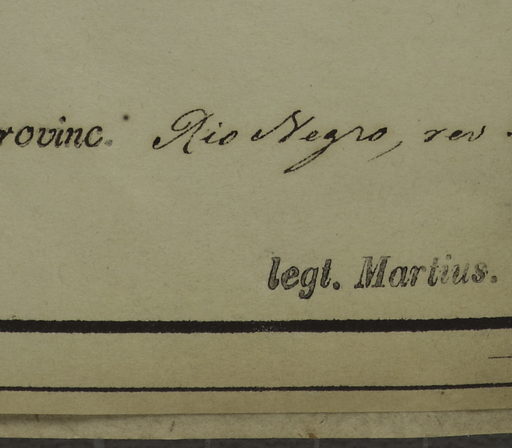 rovinc. Rio Negro, rev
legt. Martius.